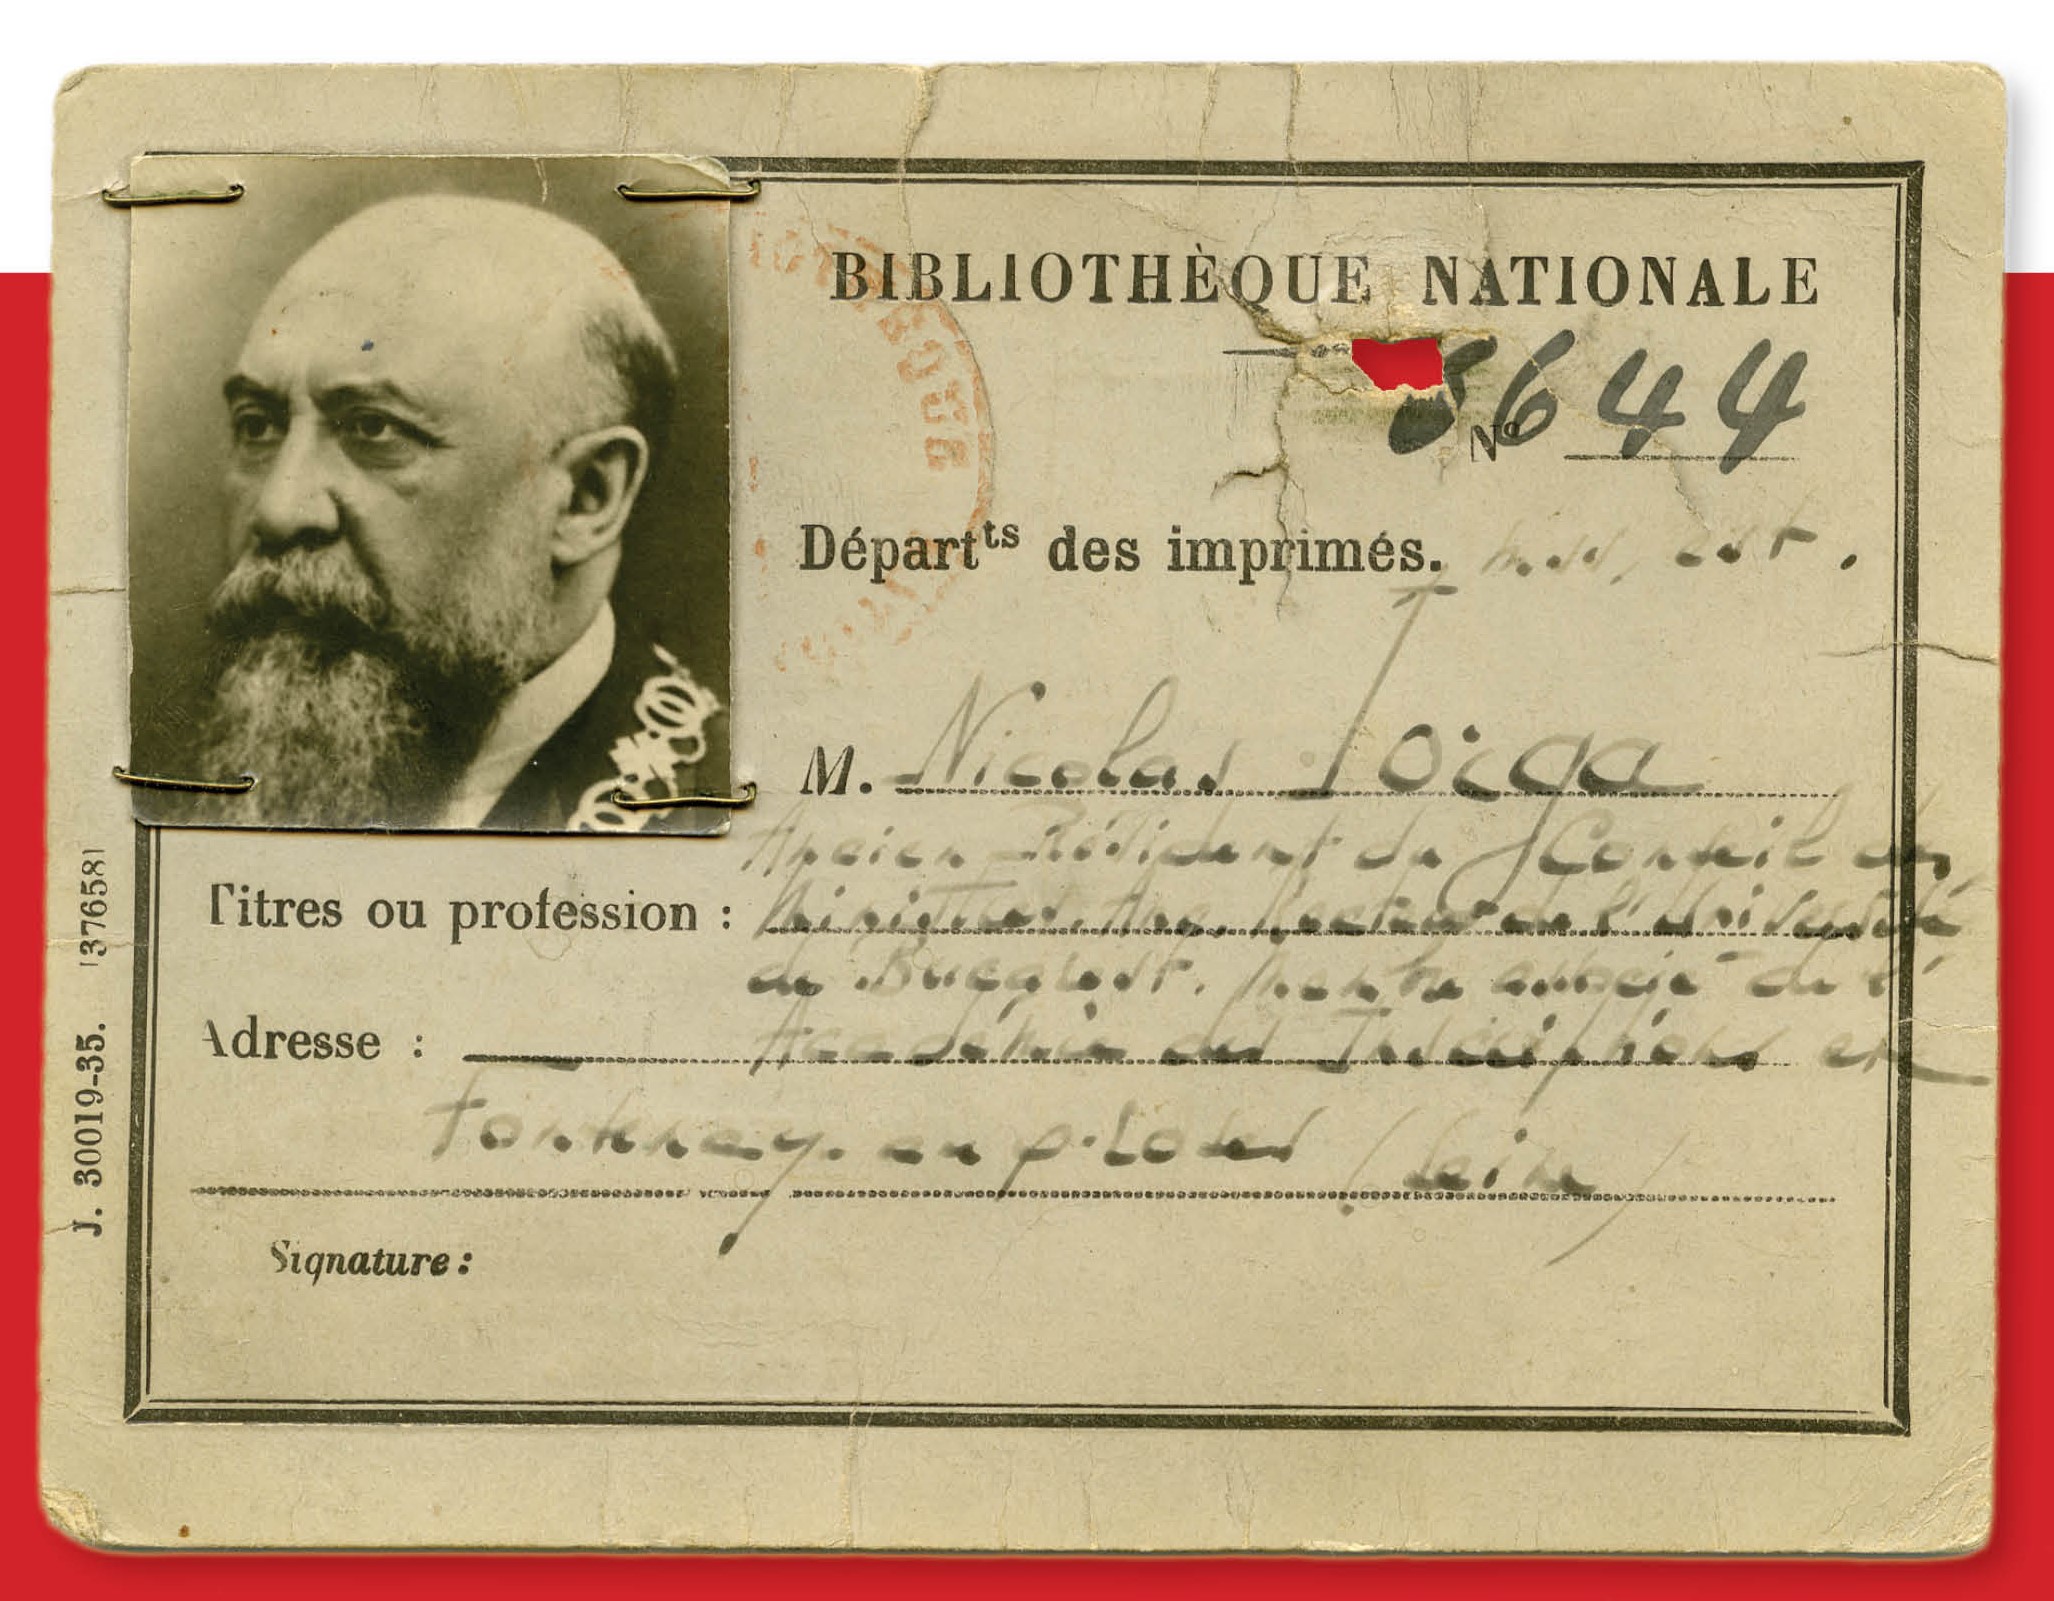 BIBLIOTHÈQUE NATIONALE
Nº 8644
Départᵗˢ des imprimés.
M. Nicolas Iorga
Ancien Président du Conseil des
Titres ou profession : Ministres. Anc. Recteur de l'Université
de Bucarest. Membre associé de l'
Adresse : Académie des Inscriptions etc
Fontenay-au p. Loser (Seine)
Signature :
J. 30019-35. [37658]